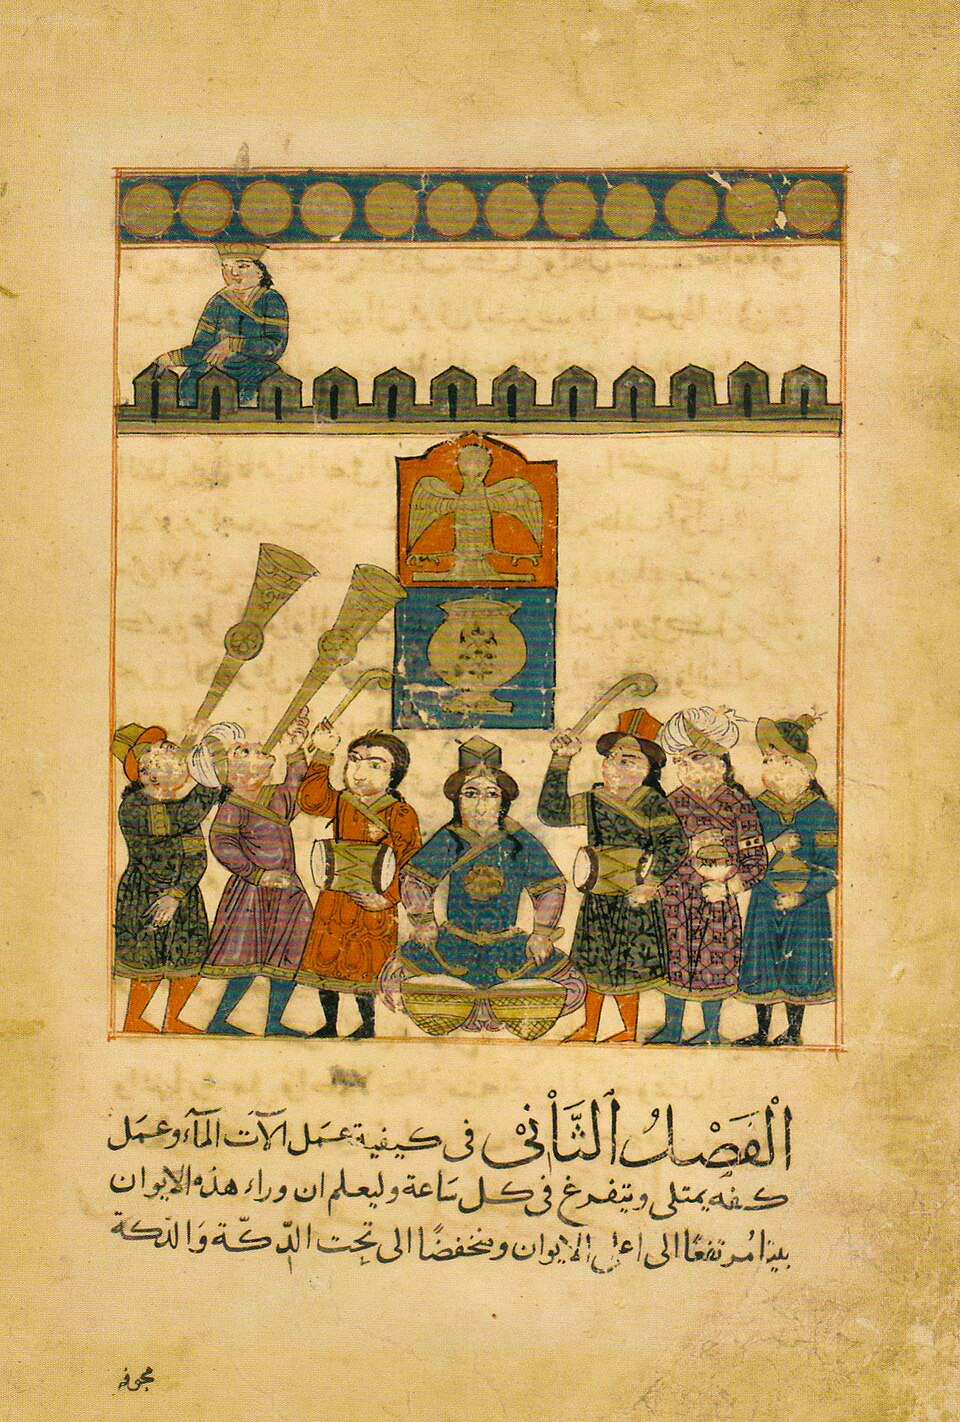 الْفَصْلُ الثَّانِيْ في كيفية عمَل الآت المَآء وعمَل
كفه يمتلى ويتفرغ في كل سَاعة وليعلم ان وراء هذه الايوان
بيتا مُرتفعًا الى اعلى الايوان ومنخفضًا الى تحت الدّكّة وَالدّكة
مجوفه